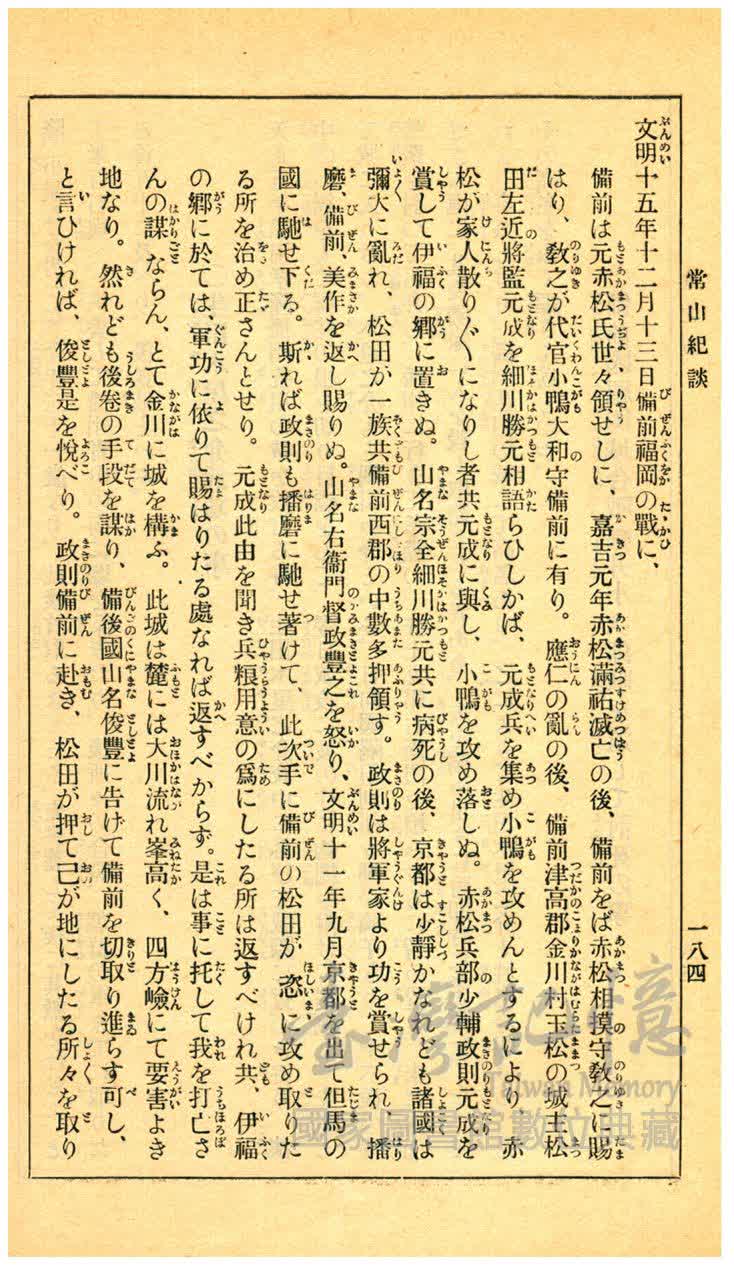 常山紀談
一八四
文明十五年十二月十三日備前福岡の戰に、
備前は元赤松氏世々領せしに、嘉吉元年赤松滿祐滅亡の後、備前をば赤松相摸守敎之に賜
はり、敎之が代官小鴨大和守備前に有り。應仁の亂の後、備前津高郡金川村玉松の城主松
田左近將監元成を細川勝元相語らひしかば、元成兵を集め小鴨を攻めんとするにより、赤
松が家人散り〴〵になりし者共元成に與し、小鴨を攻め落しぬ。赤松兵部少輔政則元成を
賞して伊福の鄕に置きぬ。山名宗全細川勝元共に病死の後、京都は少靜かなれども諸國は
彌大に亂れ、松田が一族共備前西郡の中數多押領す。政則は將軍家より功を賞せられ、播
磨、備前、美作を返し賜りぬ。山名右衞門督政豐之を怒り、文明十一年九月京都を出て但馬の
國に馳せ下る。斯れば政則も播磨に馳せ著けて、此次手に備前の松田が恣に攻め取りた
る所を治め正さんとせり。元成此由を聞き兵粮用意の爲にしたる所は返すべけれ共、伊福
の鄕に於ては、軍功に依りて賜はりたる處なれば返すべからず。是は事に托して我を打亡さ
んの謀ならん、とて金川に城を構ふ。此城は麓には大川流れ峯高く、四方嶮にて要害よき
地なり。然れども後卷の手段を謀り、備後國山名俊豐に告げて備前を切取り進らす可し、
と言ひければ、俊豐是を悅べり。政則備前に赴き、松田が押て己が地にしたる所々を取り
臺灣記憶
Taiwan Memory
國家圖書館數位典藏